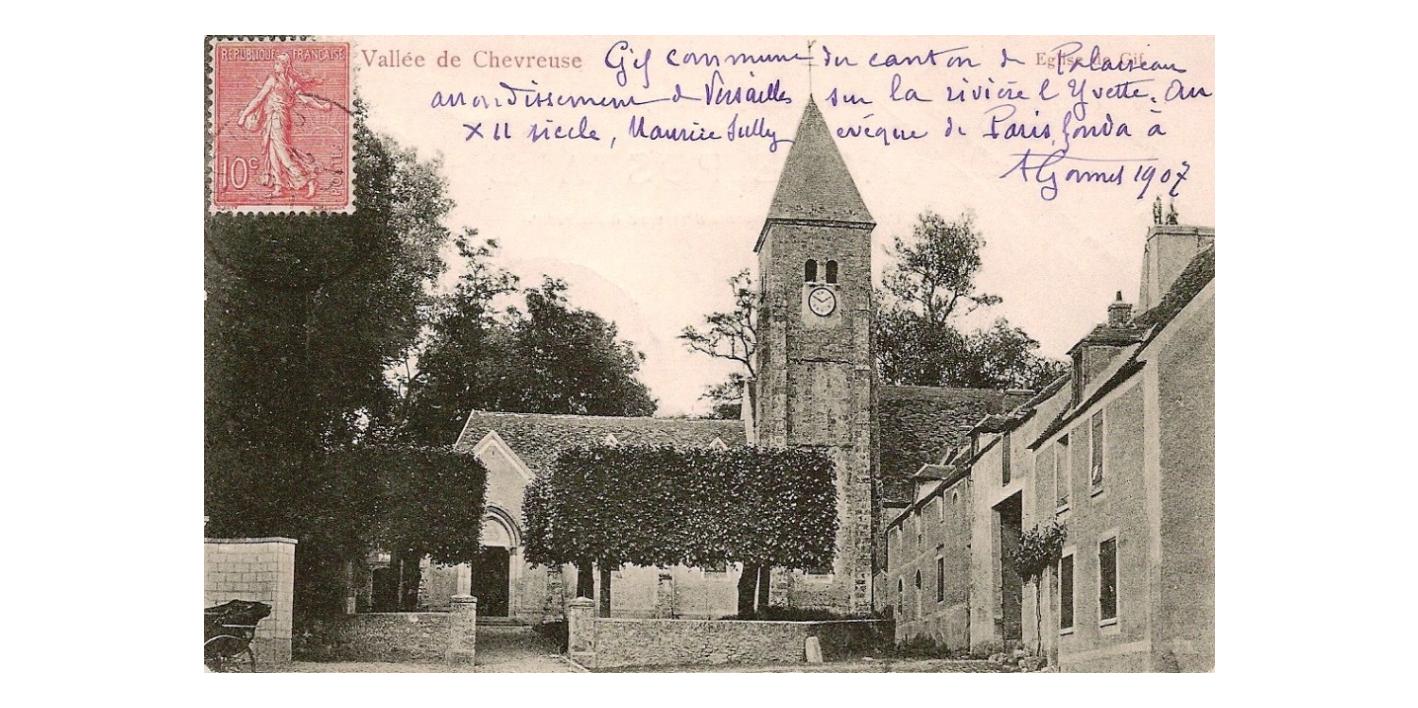 REPUBLIQUE FRANÇAISE
10c
Vallée de Chevreuse
Eglise de Gif
Gif commune du canton de Palaiseau
arrondissement de Versailles sur la rivière l'Yvette. Au
XII siècle, Maurice Sully evéque de Paris, fonda à
1907